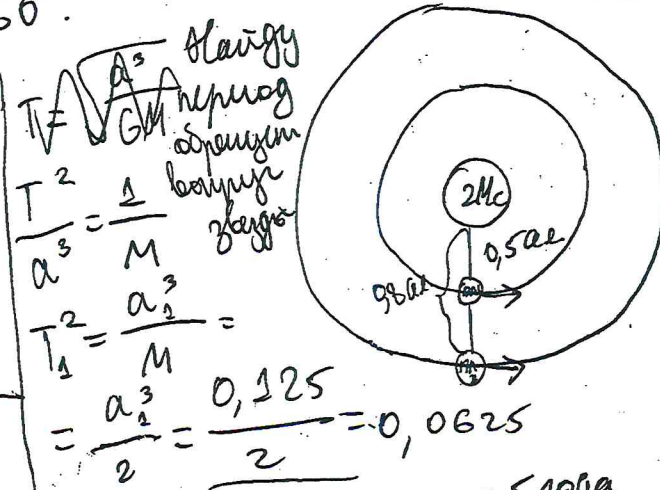 Найду
период
обращен
вокруг
звезды
T² / a³ = 1 / M
T₁² = a₁³ / M =
= a₁³ / 2 = 0,125 / 2 = 0,0625
2Mc
0,5 ае
0,8 ае